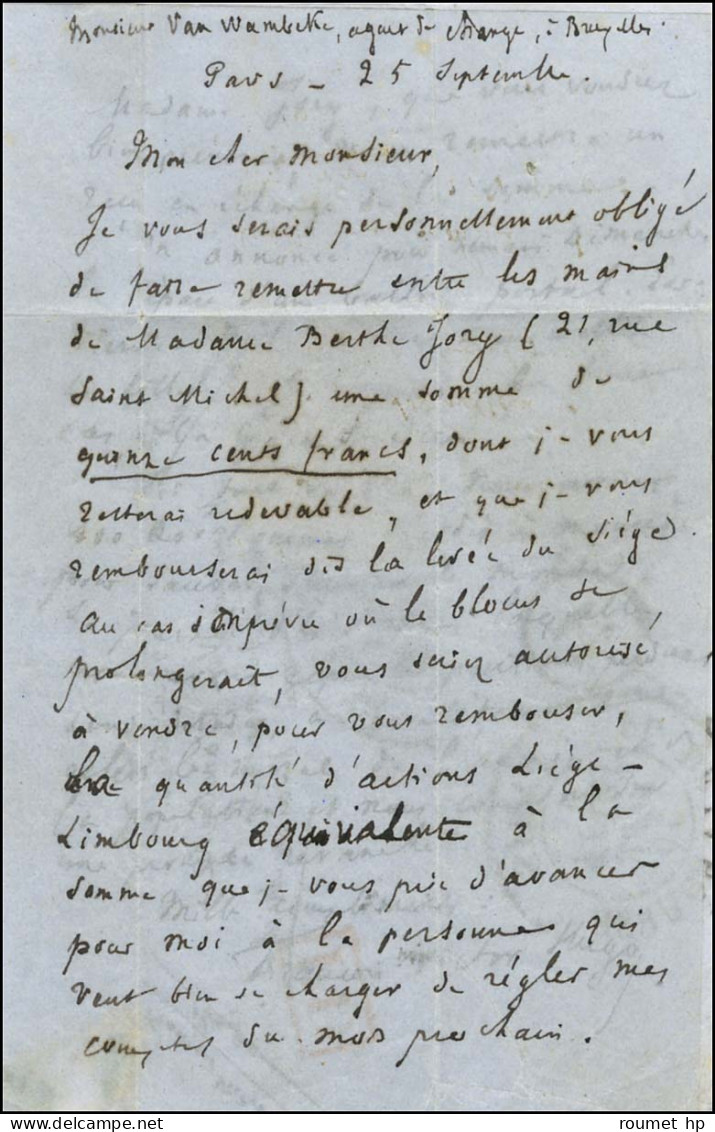 Monsieur Van Wambeke, agent de change, à Bruxelles.
Paris - 25 Septembre.
Mon cher Monsieur,
Je vous serais personnellement obligé
de faire remettre entre les mains
de Madame Berthe Jory (21, rue
Saint Michel) une somme de
quinze cents francs, dont je vous
resterai redevable, et que je vous
rembourserai dès la levée du siége.
Au cas imprévu où le blocus se
prolongerait, vous seriez autorisé
à vendre, pour vous rembourser,
la quantité d'actions Liége-
Limbourg équivalente à la
somme que je vous prie d'avancer
pour moi à la personne qui
veut bien se charger de régler mes
comptes du mois prochain.
roumet hp